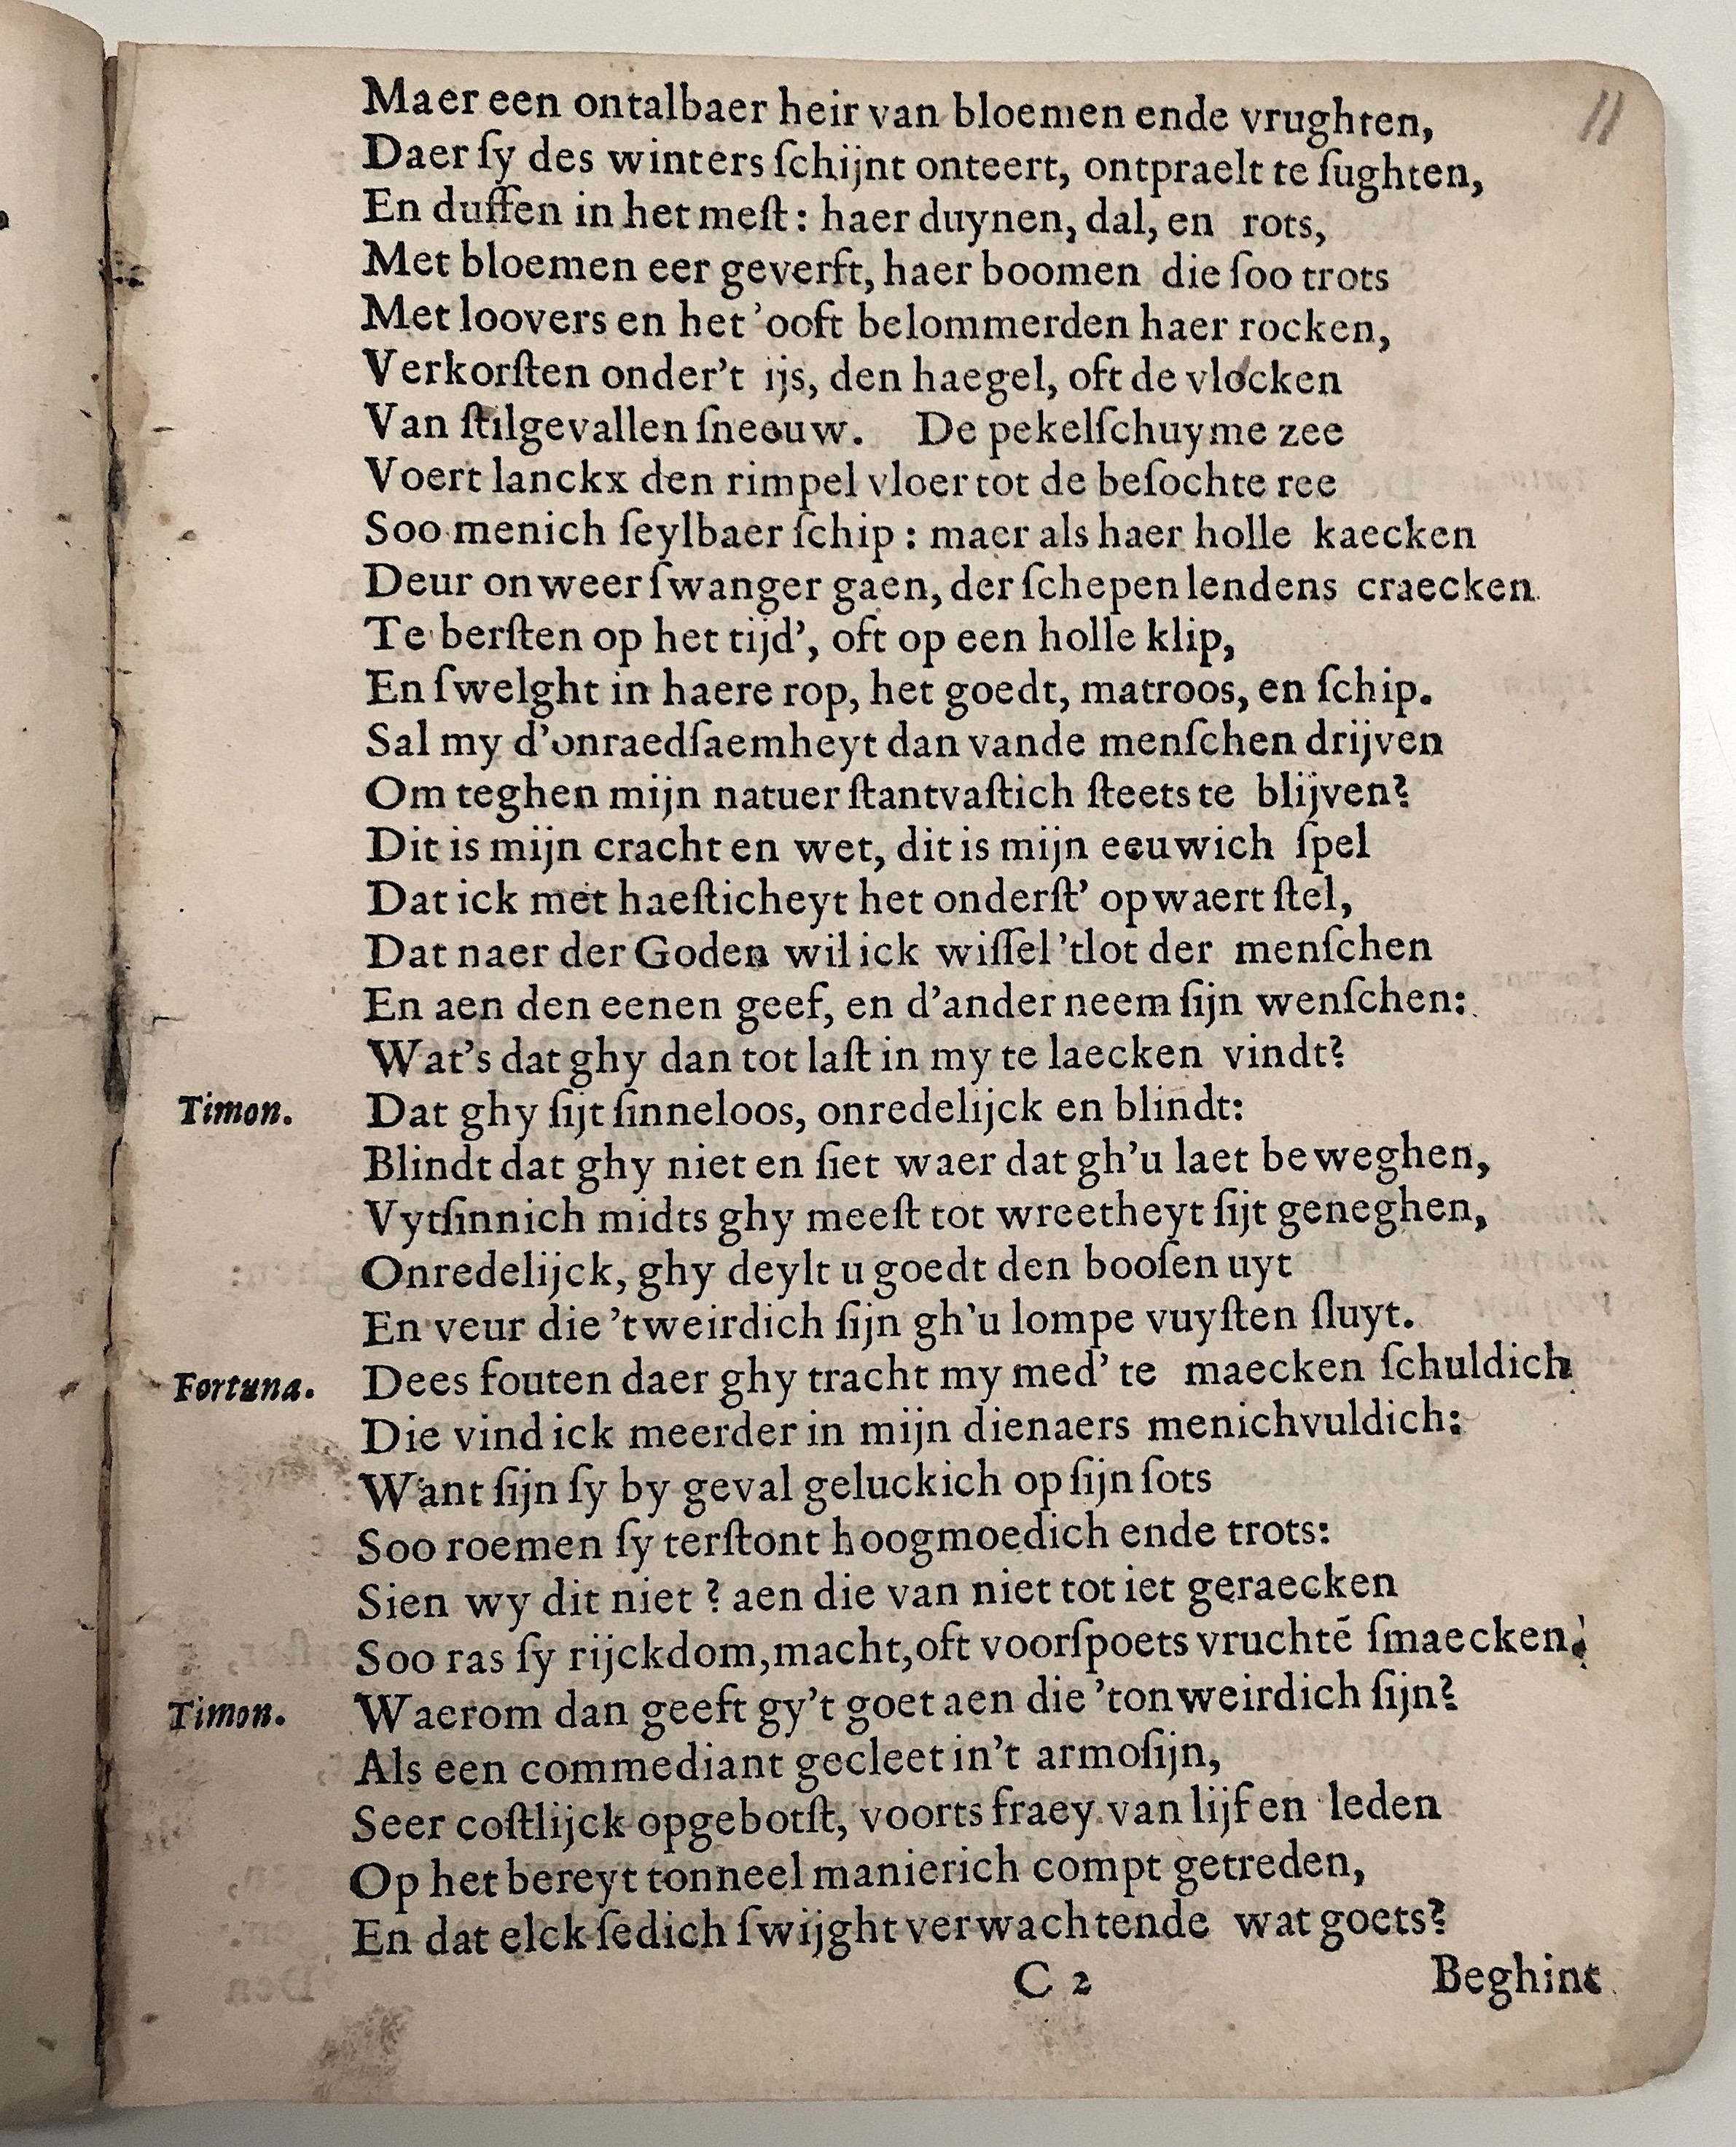 11
Maer een ontalbaer heir van bloemen ende vrughten,
Daer ſy des winters ſchijnt onteert, ontpraelt te ſughten,
En duffen in het meſt: haer duynen, dal, en rots,
Met bloemen eer geverft, haer boomen die ſoo trots
Met loovers en het 'ooft belommerden haer rocken,
Verkorſten onder't ijs, den haegel, oft de vlocken
Van ſtilgevallen ſneeuw. De pekelſchuyme zee
Voert lanckx den rimpel vloer tot de beſochte ree
Soo menich ſeylbaer ſchip: maer als haer holle kaecken
Deur onweer ſwanger gaen, der ſchepen lendens craecken
Te berſten op het tijd', oft op een holle klip,
En ſwelght in haere rop, het goedt, matroos, en ſchip.
Sal my d'onraedſaemheyt dan vande menſchen drijven
Om teghen mijn natuer ſtantvaſtich ſteets te blijven?
Dit is mijn cracht en wet, dit is mijn eeuwich ſpel
Dat ick met haeſticheyt het onderſt' opwaert ſtel,
Dat naer der Goden wil ick wiſſel 'tlot der menſchen
En aen den eenen geef, en d'ander neem ſijn wenſchen:
Wat's dat ghy dan tot laſt in my te laecken vindt?
Timon. Dat ghy ſijt ſinneloos, onredelijck en blindt:
Blindt dat ghy niet en ſiet waer dat gh'u laet beweghen,
Vytſinnich midts ghy meeſt tot wreetheyt ſijt geneghen,
Onredelijck, ghy deylt u goedt den booſen uyt
En veur die 'tweirdich ſijn gh'u lompe vuyſten ſluyt.
Fortuna. Dees fouten daer ghy tracht my med' te maecken ſchuldich
Die vind ick meerder in mijn dienaers menichvuldich:
Want ſijn ſy by geval geluckich op ſijn ſots
Soo roemen ſy terſtont hoogmoedich ende trots:
Sien wy dit niet? aen die van niet tot iet geraecken
Soo ras ſy rijckdom, macht, oft voorſpoets vruchtē ſmaecken.
Timon. Waerom dan geeft gy't goet aen die 'tonweirdich ſijn?
Als een commediant gecleet in't armoſijn,
Seer coſtlijck opgebotſt, voorts fraey van lijf en leden
Op het bereyt tonneel manierich compt getreden,
En dat elck ſedich ſwijght verwachtende wat goets?
C 2 Beghint